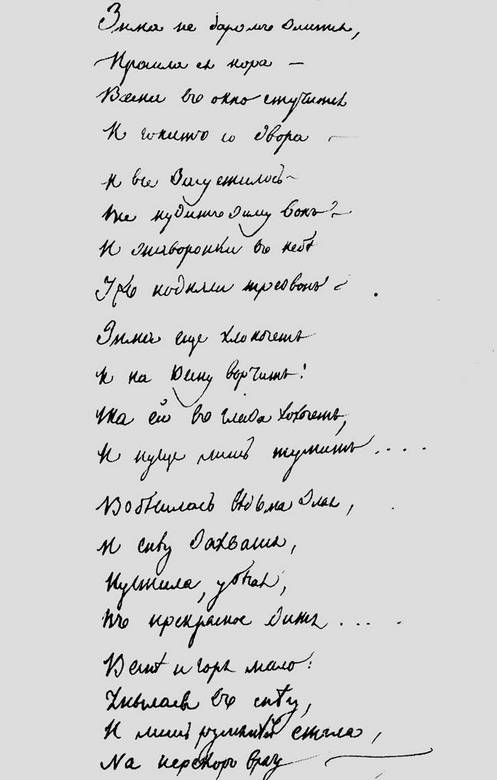 Зима не даромъ злится,
Прошла ея пора —
Весна въ окно стучится
И гонитъ со двора —
И все засуетилось —
Все нудитъ зиму вонъ —
И жаворонки въ небѣ
Ужъ подняли трезвонъ —
Зима еще хлопочетъ
И на Весну ворчитъ!
Та ей въ глаза хохочетъ,
И пуще лишь шумитъ ....
Взбѣсилась вѣдьма злая,
И снѣгу захватя,
Пустила, убѣгая,
Въ прекрасное дитя ....
Веснѣ и горя мало:
Умылася въ снѣгу,
И лишь румянѣй стала,
На перекоръ врагу —